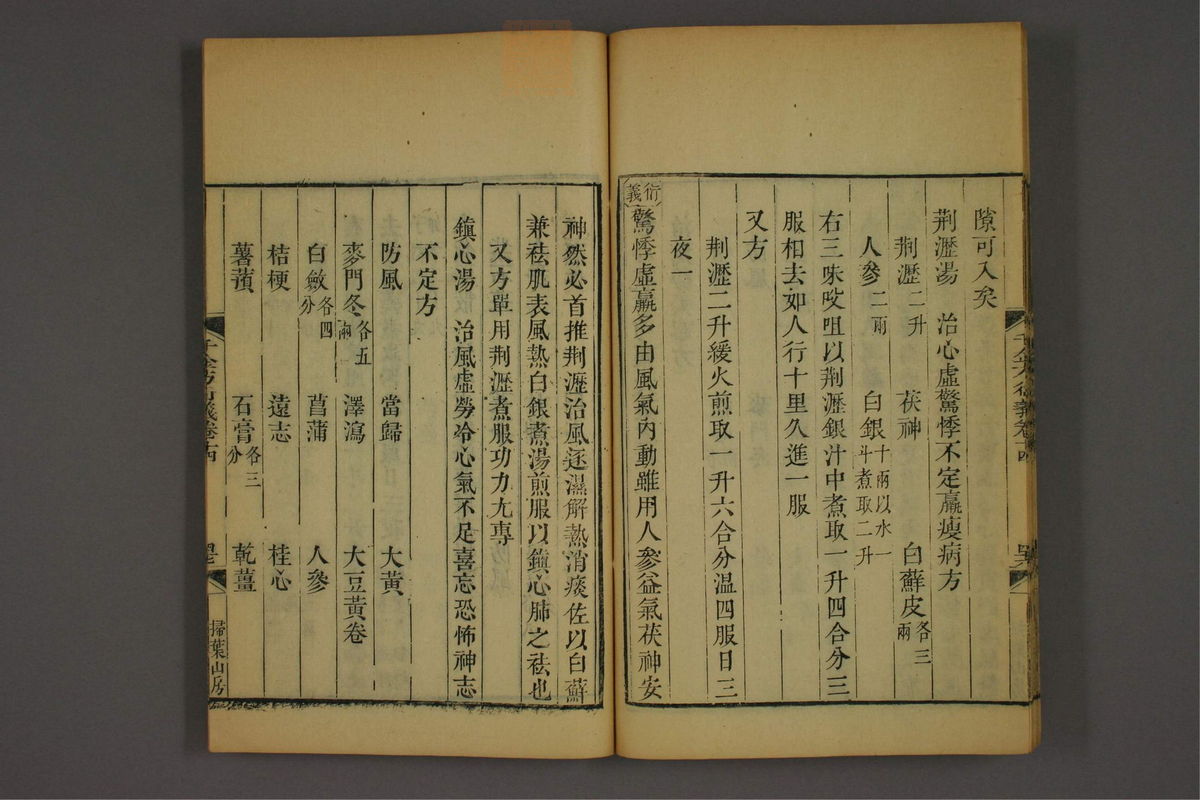 隙可入矣
荆瀝湯　治心虛驚悸不定羸瘦病方
荆瀝二升　茯神　白蘚皮各三兩
人參二兩　白銀十兩以水一斗煮取二升
右三味㕮咀以荆瀝銀汁中煮取一升四合分三
服相去如人行十里久進一服
又方
荆瀝二升緩火煎取一升六合分温四服日三
夜一
衍義　驚悸虛羸多由風氣内動雖用人參益氣茯神安
神然必首推荆瀝治風逐濕解熱消痰佐以白蘚
兼袪肌表風熱白銀煮湯煎服以鎭心肺之祛也
又方單用荆瀝煮服功力尤專
鎭心湯　治風虛勞冷心氣不足喜忘恐怖神志
不定方
防風　當歸　大黃
麥門冬各五兩　澤瀉　大豆黃卷
白斂各四分　菖蒲　人參
桔梗　遠志　桂心
薯蕷　石膏各三分　乾薑
千金方衍義卷十四
掃葉山房